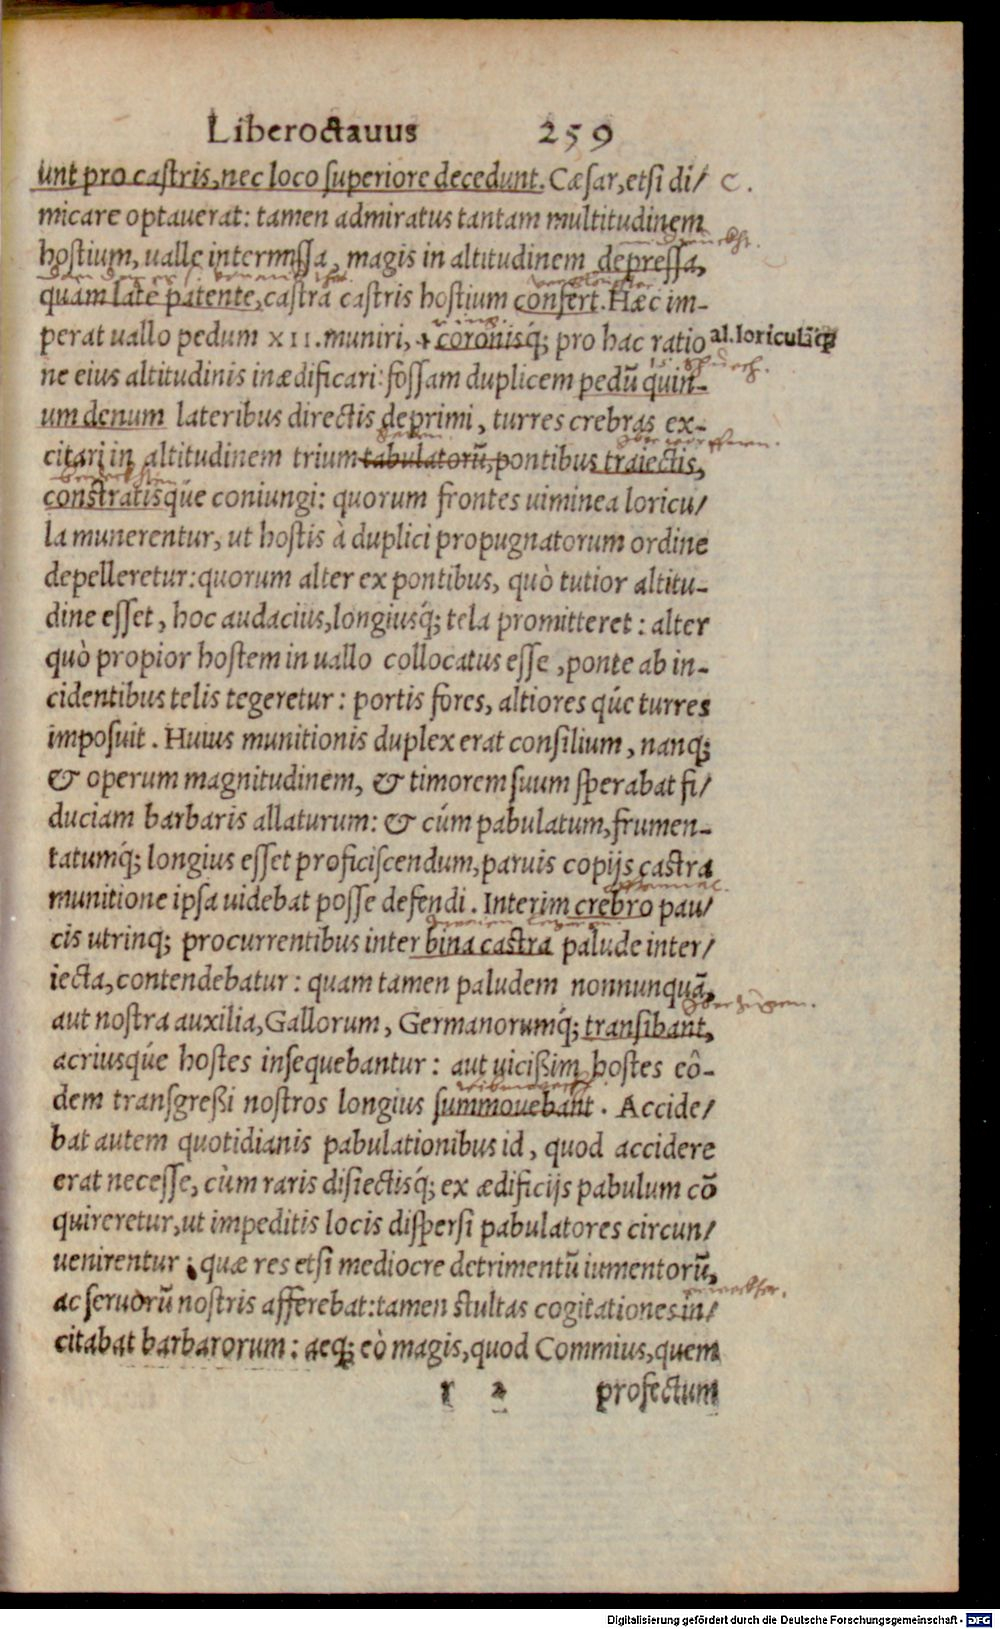 Liber octauus 259
unt pro castris, nec loco superiore decedunt. Cæsar, etsi di/ C.
micare optauerat: tamen admiratus tantam multitudinem
hostium, ualle intermissa, magis in altitudinem depressa,
quam latè patente, castra castris hostium confert. Hæc im-
perat uallo pedum XII. muniri, + coronisq́; pro hac ratio al. loriculāq;
ne eius altitudinis inædificari: fossam duplicem pedũ quin-
um denum lateribus directis deprimi, turres crebras ex-
citari in altitudinem trium tabulatorũ, pontibus traiectis,
constratisq́ue coniungi: quorum frontes uiminea loricu/
la munerentur, ut hostis à duplici propugnatorum ordine
depelleretur: quorum alter ex pontibus, quò tutior altitu-
dine esset, hoc audacius, longiusq́; tela promitteret: alter
quò propior hostem in uallo collocatus esse, ponte ab in-
cidentibus telis tegeretur: portis fores, altiores q́ue turres
imposuit. Huius munitionis duplex erat consilium, nanq;
& operum magnitudinem, & timorem suum sperabat fi/
duciam barbaris allaturum: & cúm pabulatum, frumen-
tatumq́; longius esset proficiscendum, paruis copijs castra
munitione ipsa uidebat posse defendi. Interim crebro pau/
cis utrinq; procurrentibus inter bina castra palude inter/
iecta, contendebatur: quam tamen paludem nonnunquã,
aut nostra auxilia, Gallorum, Germanorumq́; transibant,
acriusq́ue hostes insequebantur: aut uicißim hostes eô-
dem transgreßi nostros longius summouebant. Accide/
bat autem quotidianis pabulationibus id, quod accidere
erat necesse, cùm raris disiectisq́; ex ædificijs pabulum cõ
quireretur, ut impeditis locis dispersi pabulatores circun/
uenirentur; quæ res etsi mediocre detrimentũ iumentorũ,
ac seruorũ nostris afferebat: tamen stultas cogitationes in/
citabat barbarorum: aeq; eò magis, quod Commius, quem
r 2 profectum
Digitalisierung gefördert durch die Deutsche Forschungsgemeinschaft - DFG